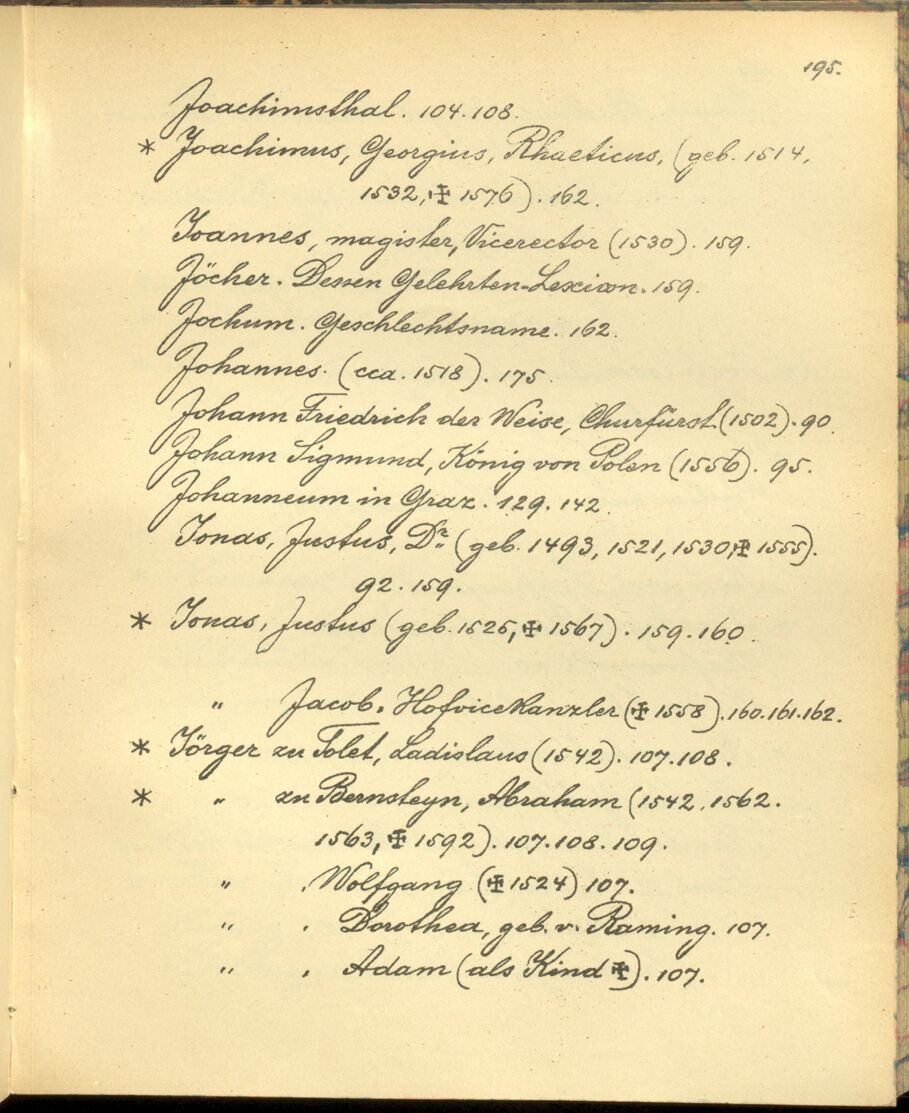 195.
Joachimsthal. 104. 108.
* Joachimus, Georgius, Rhaeticus, (geb. 1514,
1532, ✠ 1576). 162.
Joannes, magister, Vicerector (1530). 159.
Jöcher. Dessen Gelehrten-Lexicon. 159.
Jochum. Geschlechtsname. 162.
Johannes. (cca. 1518). 175.
Johann Friedrich der Weise, Churfürst (1502). 90.
Johann Sigmund, König von Polen (1556). 95.
Johanneum in Graz. 129. 142.
Jonas, Justus, Dr. (geb. 1493, 1521, 1530, ✠ 1555).
92. 159.
* Jonas, Justus (geb. 1525, ✠ 1567). 159. 160.
„ Jacob. Hofvicekanzler (✠ 1558). 160. 161. 162.
* Jörger zu Tolet, Ladislaus (1542). 107. 108.
* „ zu Bernsteyn, Abraham (1542, 1562.
1563, ✠ 1592). 107. 108. 109.
„ . Wolfgang (✠ 1524) 107.
„ . Dorothea, geb. v. Raming. 107.
„ . Adam (als Kind ✠). 107.